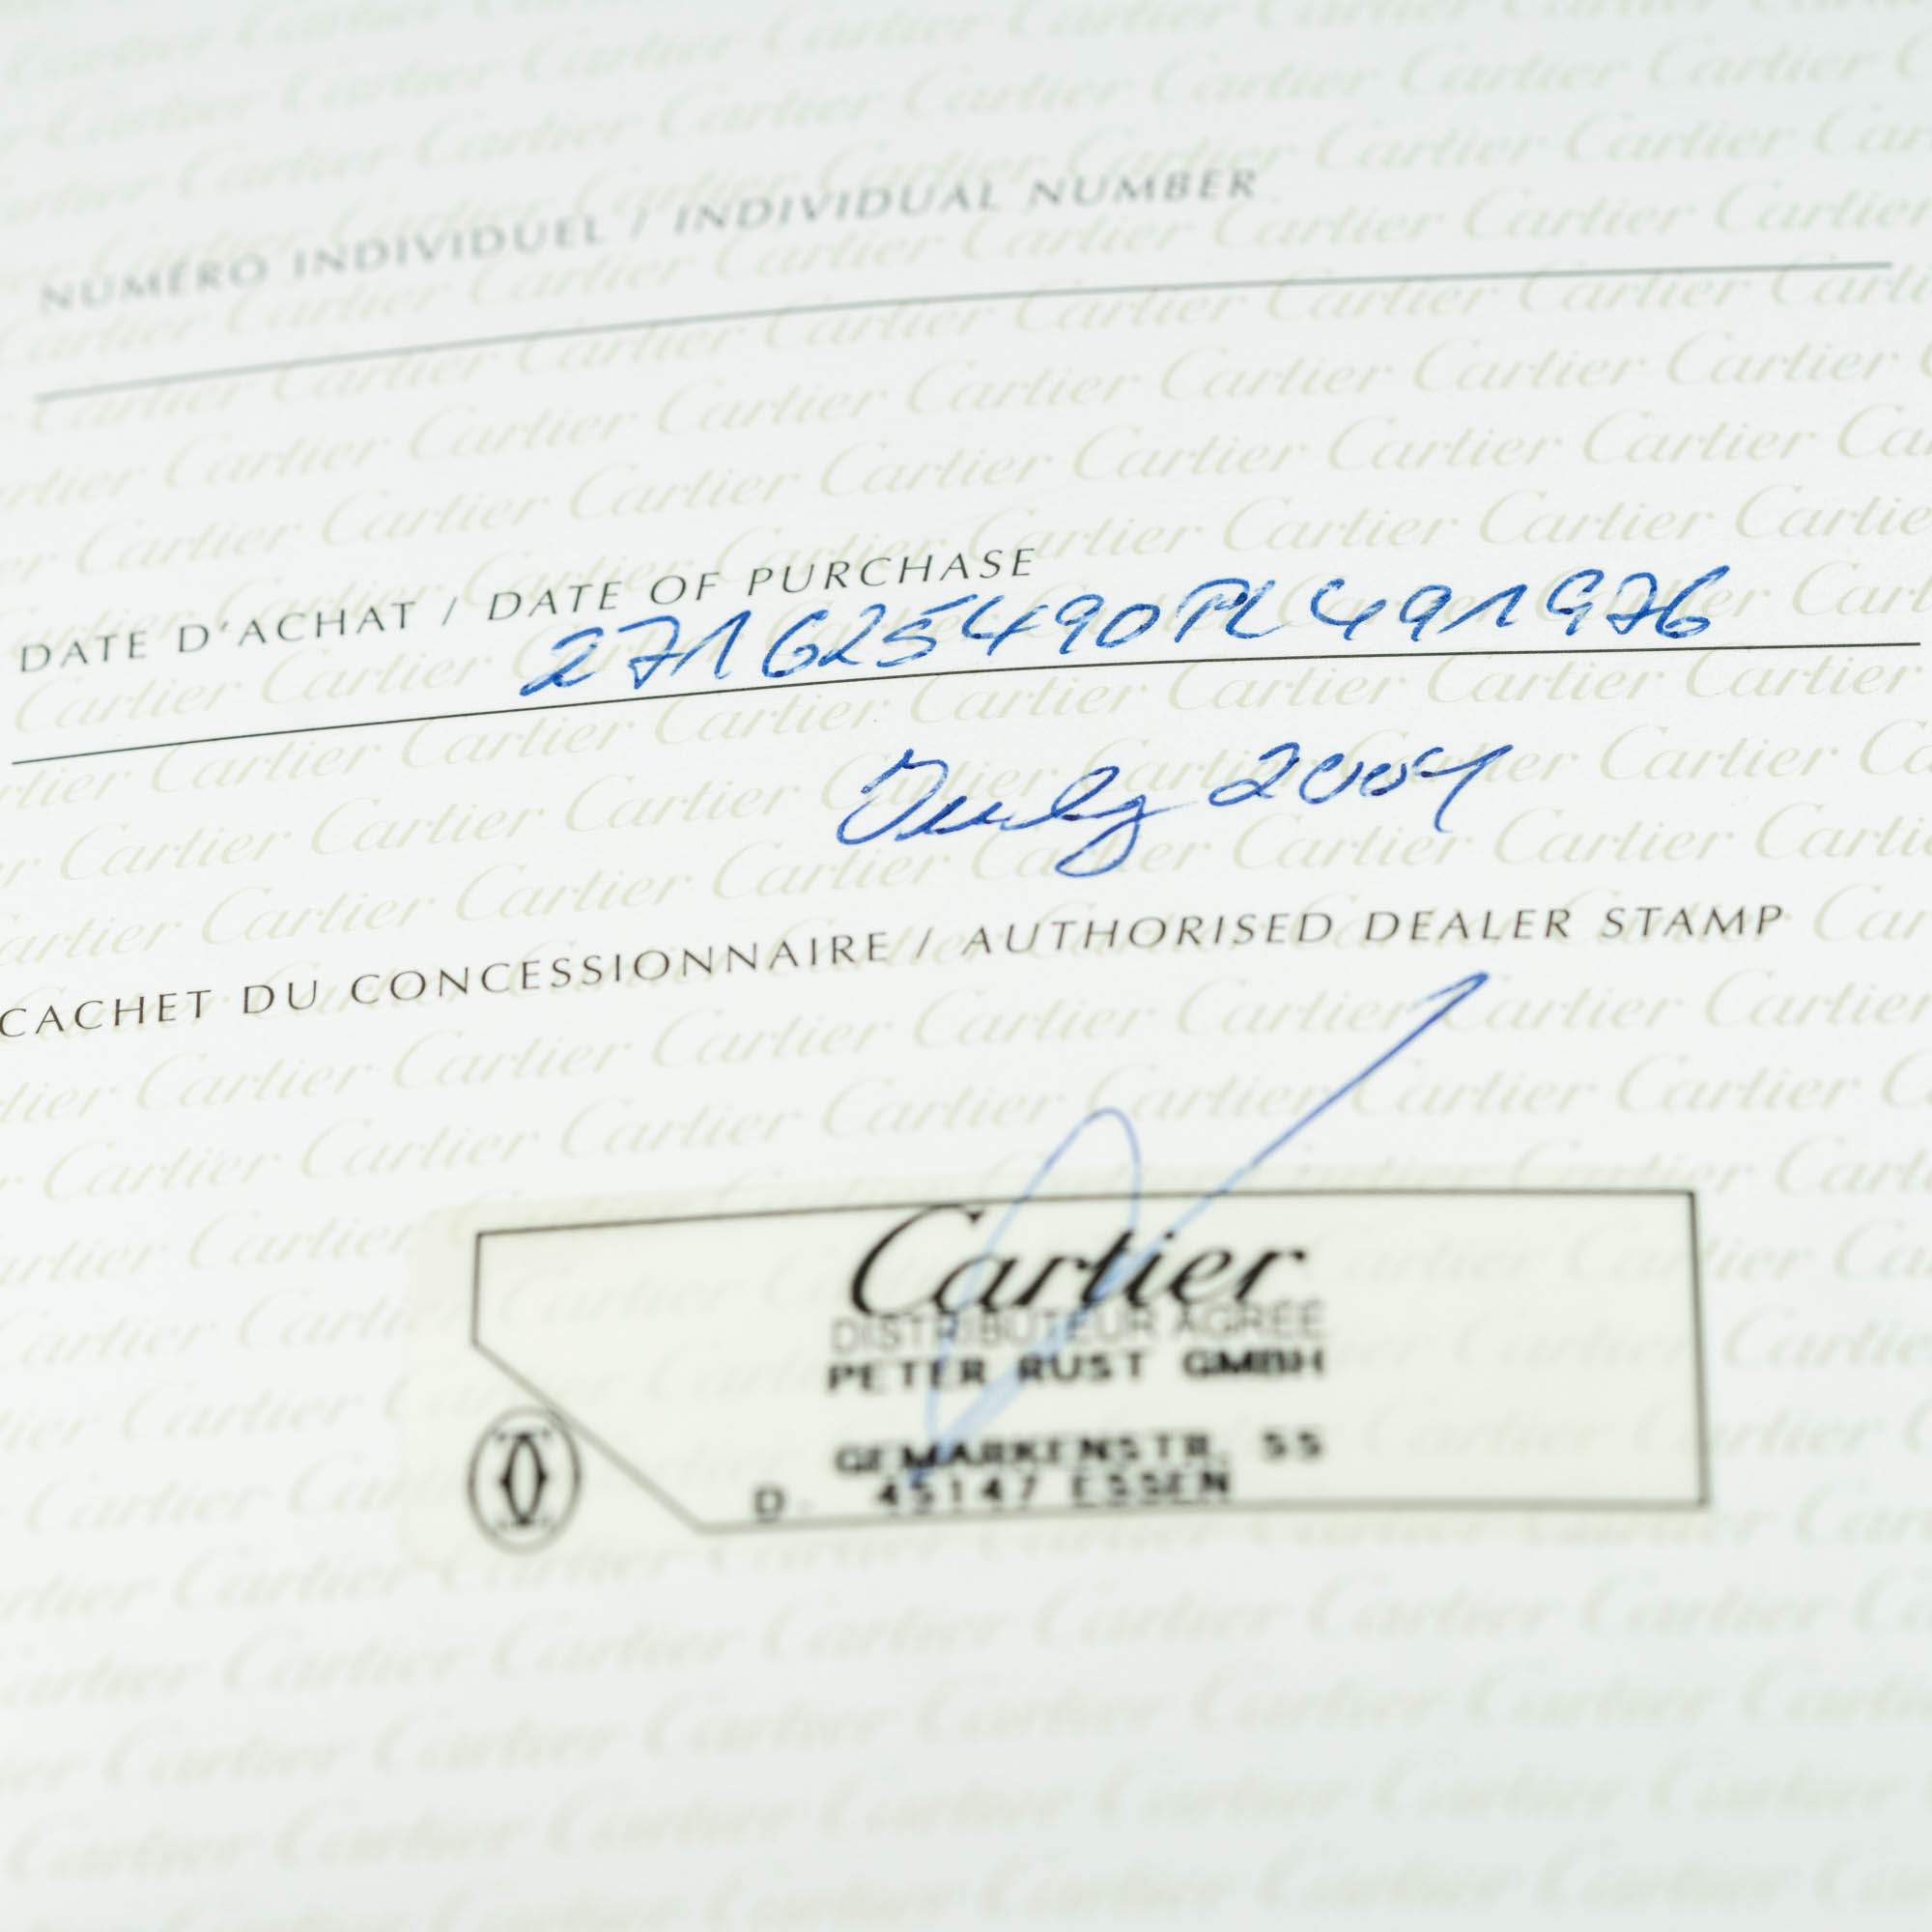 NUMÉRO INDIVIDUEL / INDIVIDUAL NUMBER
DATE D'ACHAT / DATE OF PURCHASE
271625490PL491976
July 2001
CACHET DU CONCESSIONNAIRE / AUTHORISED DEALER STAMP
Cartier
DISTRIBUTEUR AGREE
PETER RUST GMBH
GEMARKENSTR. 55
D. 45147 ESSEN